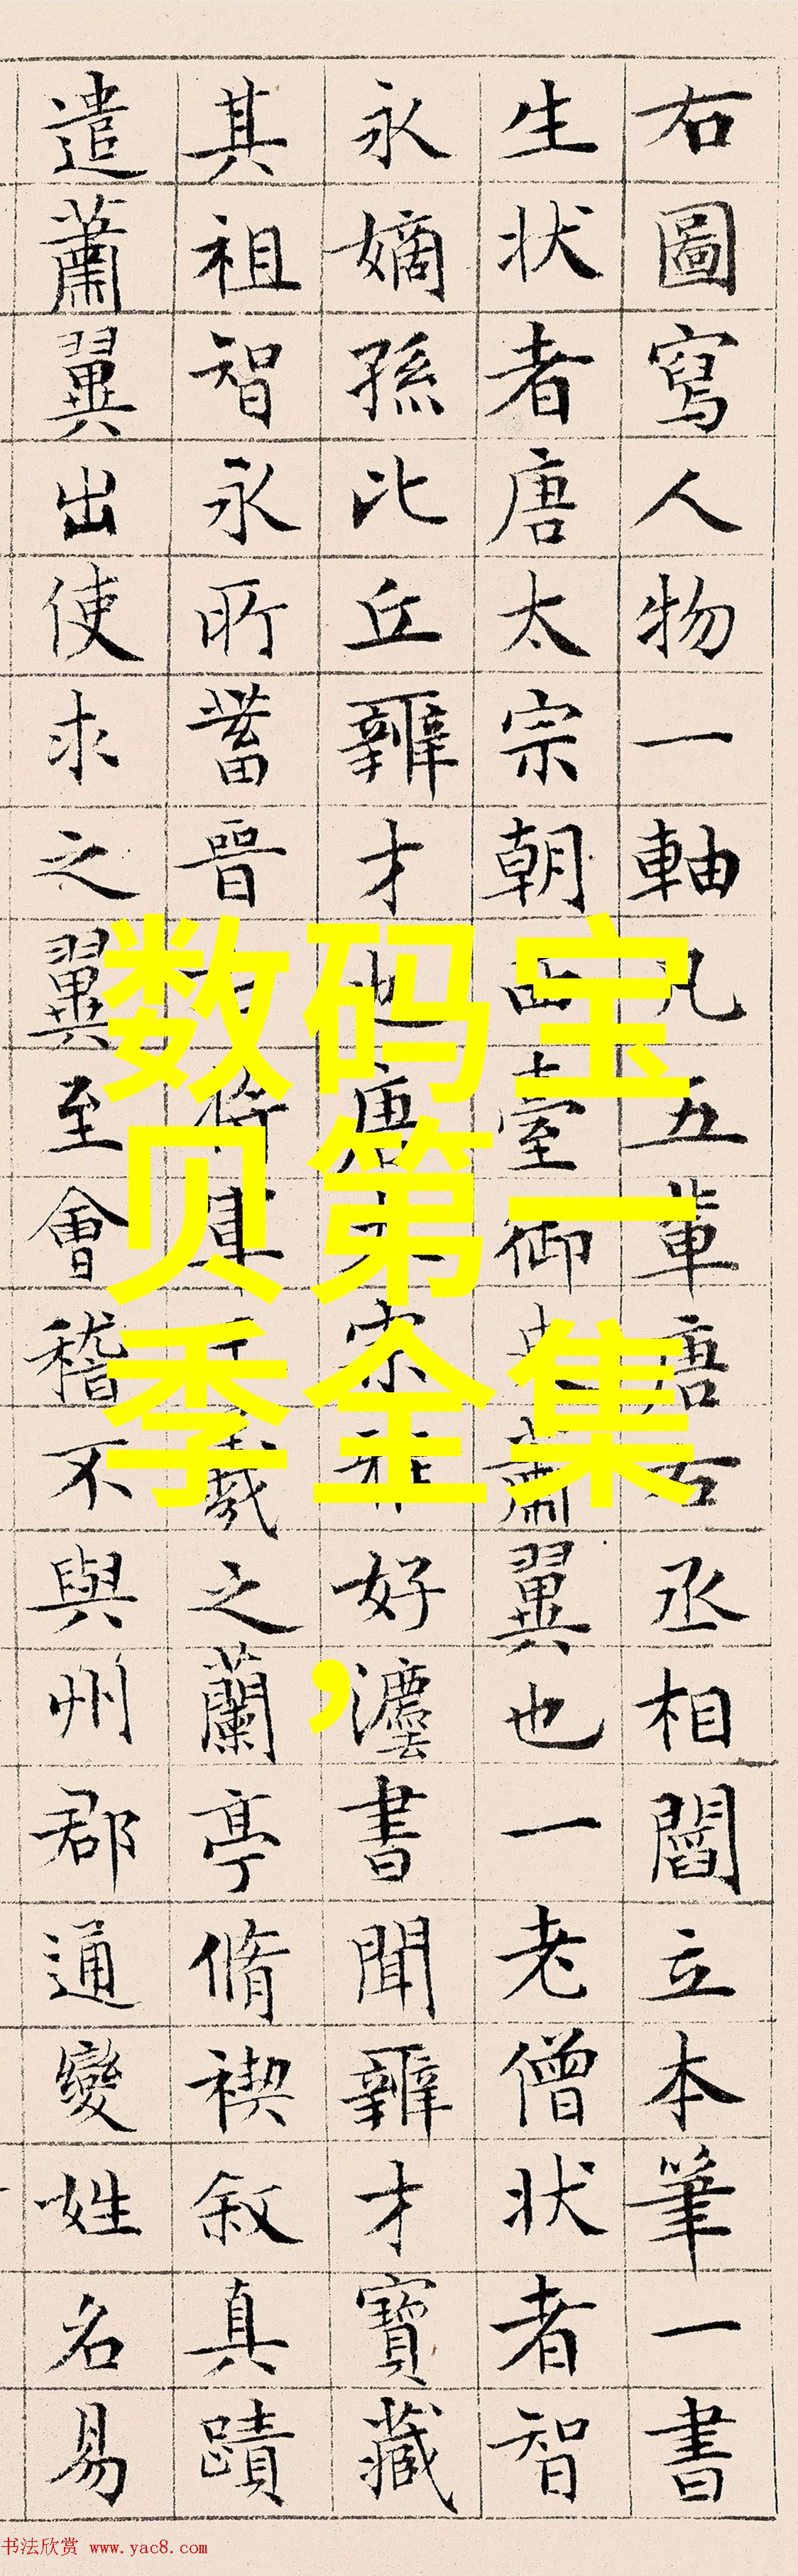 右圖寫人物一軸凡五輩唐右丞相閻立本筆一書
生状者唐太宗朝西臺御史蕭翼也一老僧状者智
永嫡孫比丘辯才也唐太宗雅好灋書聞辯才寶藏
其祖智永所蓄晉右將軍王羲之蘭亭脩禊叙真蹟
遣蕭翼出使求之翼至會稽不與州郡通變姓名易
数码宝
贝第一
季全集
，
书法欣赏 www.yac8.com